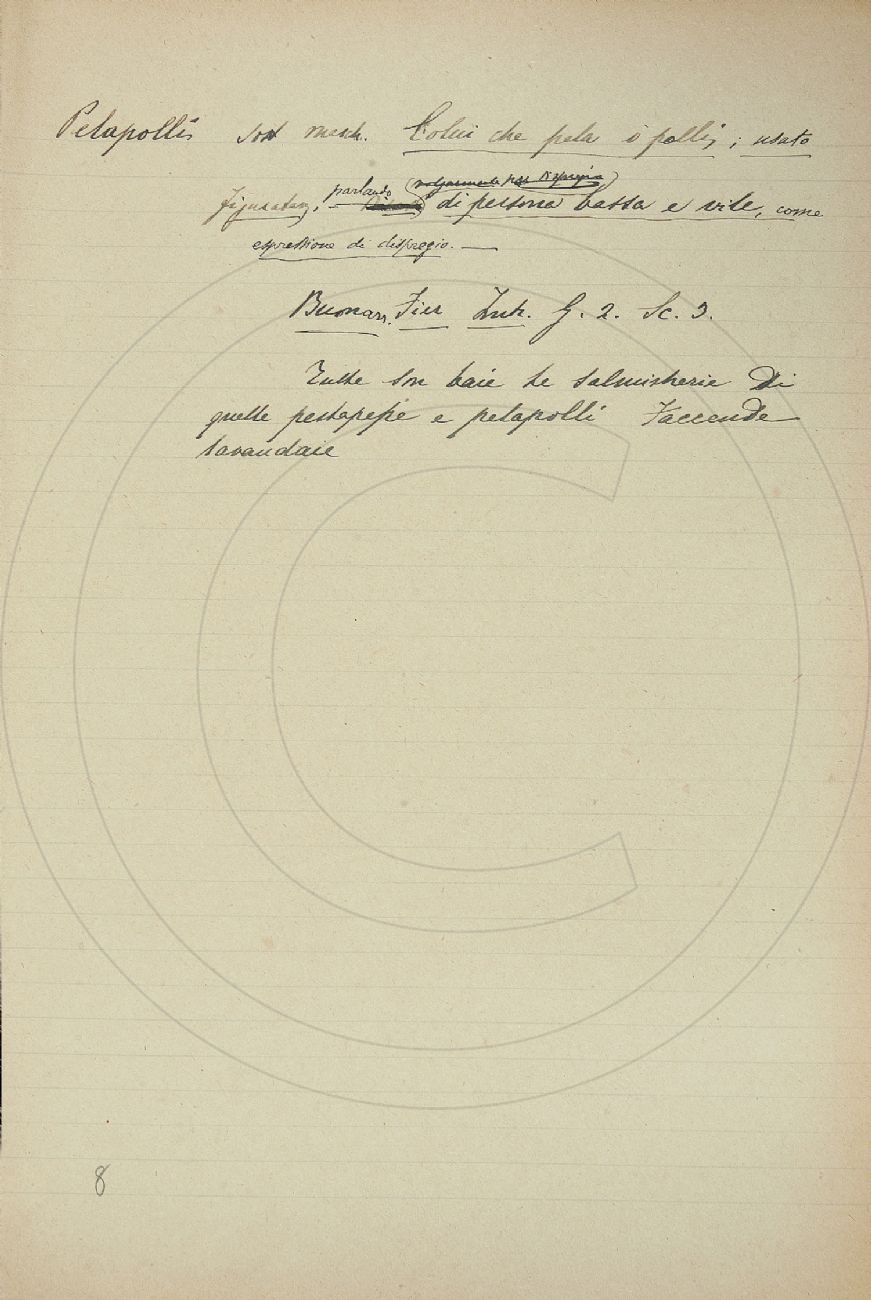 Pelapolli sost. masch. Colui che pela i polli; usato
figuratam., parlando (volgarmente per dispregio) di persona bassa e vile, come
espressione di dispregio. —
Buonarr. Fier. Intr. G. 2. Sc. 3.
Tutte son baie le salmisterie Di
quelle pestapepe e pelapolli Faccende
lavandaie
8